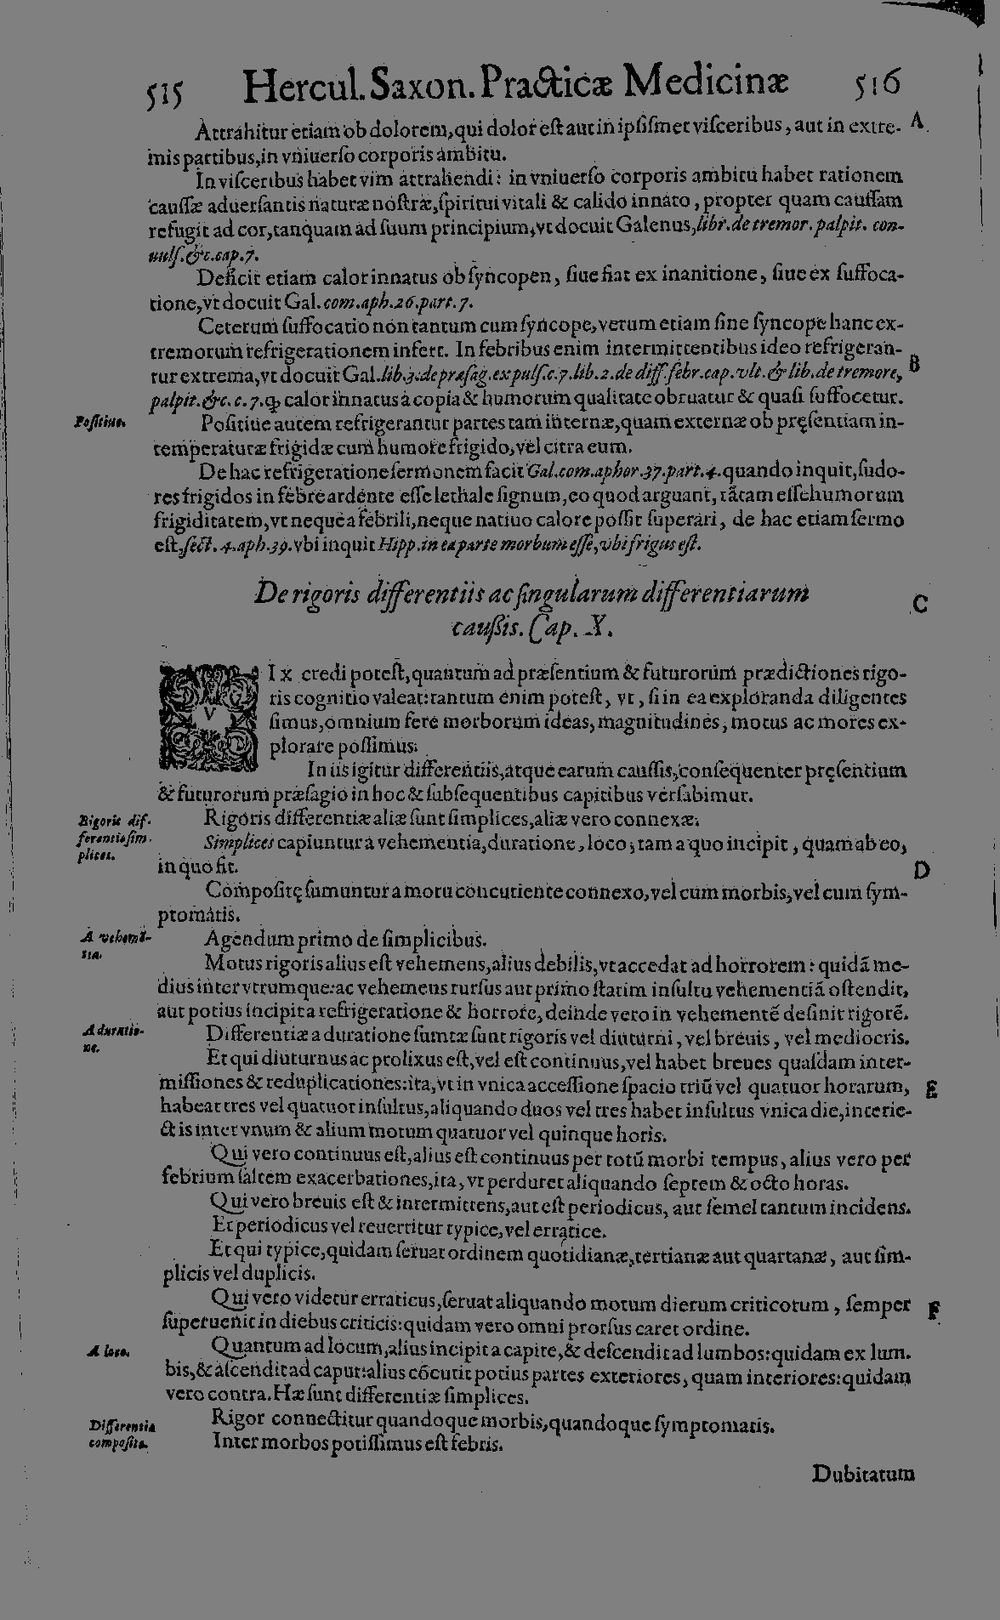 515 Hercul. Saxon. Practicæ Medicinæ 516
Attrahitur etiam ob dolorem, qui dolor est aut in ipsismet visceribus, aut in extre- A
mis partibus, in vniuerso corporis ambitu.
In visceribus habet vim attrahendi: in vniuerso corporis ambitu habet rationem
caussæ aduersantis naturæ nostræ, spiritui vitali & calido innato, propter quam caussam
refugit ad cor, tanquam ad suum principium, vt docuit Galenus, libr. de tremor. palpit. con-
uuls. &c. cap. 7.
Deficit etiam calor innatus ob syncopen, siue fiat ex inanitione, siue ex suffoca-
tione, vt docuit Gal. com. aph. 26. part. 7.
Ceterum suffocatio non tantum cum syncope, verum etiam sine syncope hanc ex-
tremorum refrigerationem infert. In febribus enim intermittentibus ideo refrigeran- B
tur extrema, vt docuit Gal. lib. 3. de præsag. ex puls. c. 7. lib. 2. de diff. febr. cap. vlt. & lib. de tremore,
palpit. &c. c. 7. ꝙ calor innatus à copia & humorum qualitate obruatur & quasi suffocetur.
Positiue. Positiue autem refrigerantur partes tam internæ, quam externæ ob pręsentiam in-
temperaturæ frigidæ cum humore frigido, vel citra eum.
De hac refrigeratione sermonem facit Gal. com. aphor. 37. part. 4. quando inquit, sudo-
res frigidos in febre ardente esse lethale signum, eo quod arguant, tãtam esse humorum
frigiditatem, vt neque a febrili, neque natiuo calore possit superari, de hac etiam sermo
est, sect. 4. aph. 39. vbi inquit Hipp. in ea parte morbum esse, vbi frigus est.
De rigoris differentiis ac singularum differentiarum C
caussis. Cap. X.
VIx credi potest, quantum ad præsentium & futurorum prædictiones rigo-
ris cognitio valeat: tantum enim potest, vt, si in ea exploranda diligentes
simus, omnium fere morborum ideas, magnitudines, motus ac mores ex-
plorare possimus.
In iis igitur differentiis, atque earum caussis, consequenter pręsentium
& futurorum præsagio in hoc & subsequentibus capitibus versabimur.
Rigoris dif- Rigoris differentiæ aliæ sunt simplices, aliæ vero connexæ.
ferentiæ sim- Simplices capiuntur à vehementia, duratione, loco; tam a quo incipit, quam ab eo,
plices. in quo fit. D
Compositę sumuntur a motu concutiente connexo, vel cum morbis, vel cum sym-
ptomatis.
A vehemẽ- Agendum primo de simplicibus.
tia. Motus rigoris alius est vehemens, alius debilis, vt accedat ad horrorem: quidã me-
dius inter vtrumque: ac vehemens rursus aut primo statim insultu vehementiã ostendit,
aut potius incipit a refrigeratione & horrore, deinde vero in vehementẽ desinit rigorẽ.
A duratio- Differentiæ a duratione sumtæ sunt rigoris vel diuturni, vel breuis, vel mediocris.
ne. Et qui diuturnus ac prolixus est, vel est continuus, vel habet breues quasdam inter-
missiones & reduplicationes: ita, vt in vnica accessione spacio triũ vel quatuor horarum, E
habeat tres vel quatuor insultus, aliquando duos vel tres habet insultus vnica die, interie-
ctis inter vnum & alium motum quatuor vel quinque horis.
Qui vero continuus est, alius est continuus per totũ morbi tempus, alius vero per
febrium saltem exacerbationes, ita, vt perduret aliquando septem & octo horas.
Qui vero breuis est & intermittens, aut est periodicus, aut semel tantum incidens.
Et periodicus vel reuertitur typice, vel erratice.
Et qui typice, quidam seruat ordinem quotidianæ, tertianæ aut quartanæ, aut sim-
plicis vel duplicis.
Qui vero videtur erraticus, seruat aliquando motum dierum criticorum, semper F
superuenit in diebus criticis: quidam vero omni prorsus caret ordine.
A loco. Quantum ad locum, alius incipit a capite, & descendit ad lumbos: quidam ex lum-
bis, & ascendit ad caput: alius cõcutit potius partes exteriores, quam interiores: quidam
vero contra. Hæ sunt differentiæ simplices.
Differentiæ Rigor connectitur quandoque morbis, quandoque symptomatis.
compositæ. Inter morbos potissimus est febris.
Dubitatum